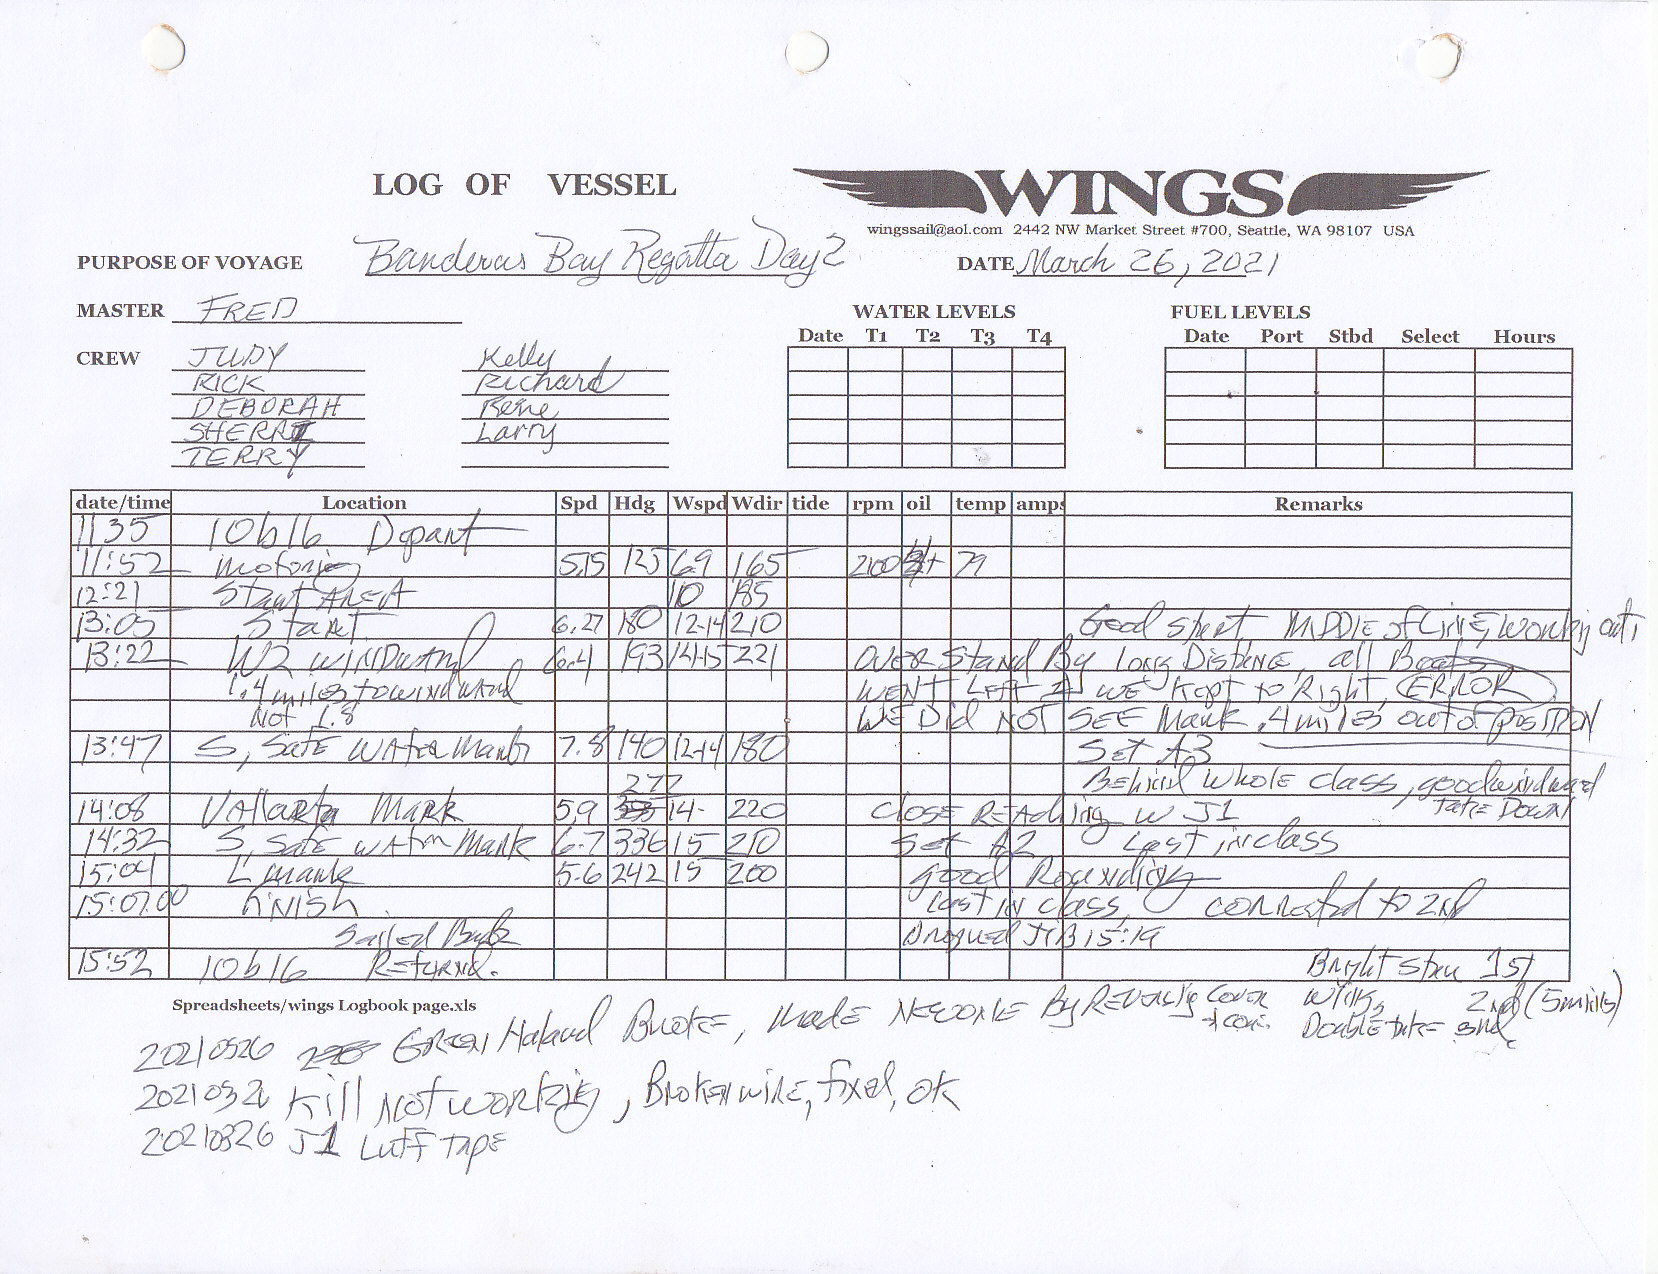 LOG OF VESSEL
WINGS
wingssail@aol.com 2442 NW Market Street #700, Seattle, WA 98107 USA
PURPOSE OF VOYAGE Banderas Bay Regatta Day 2 DATE March 26, 2021
MASTER FRED
WATER LEVELS FUEL LEVELS
Date T1 T2 T3 T4 Date Port Stbd Select Hours
CREW JUDY Kelly
RICK Richard
DEBORAH Rene
SHERRI Larry
TERRY
date/time Location Spd Hdg Wspd Wdir tide rpm oil temp amps Remarks
1135 10b16 Depart
11:52 motoring 5.15 125 6.9 165 2100 79
12:21 Start AREA 10 185
13:05 Start 6.27 180 12-14 210 Good start MIDDLE of LINE, working out,
13:22 W2 WINDWARD 6.4 193 14-15 221 OVER Stand By long Distance, all Boats
1.4 miles to windward WENT Left & we kept to Right, ERROR
Not 1.8 WE Did NOT SEE Mark .4 miles out of position
13:47 S, Safe Water Mark 7.8 140 12-14 180 Set A3
277 Behind whole class, good windward
14:08 Vallarta Mark 5.9 14- 220 Close REAching w J1 take Down
14:32 S, Safe water Mark 6.7 336 15 210 Set A2 Last in class
15:04 L mark 5.6 242 15 200 good Rounding
15:07.00 finish Last in class, corrected to 2nd
Sailed Back Dropped JIB 15:19
15:52 10b16 Returnd. Bright Star 1st
Spreadsheets/wings Logbook page.xls
Wings 2nd (5 mins)
Double take 3rd
20210326 Green Halyard Broke, Made New one By Reversing Cover + core.
20210326 Kill Not working, Broken wire, fixed, OK
20210326 J1 Luff Tape